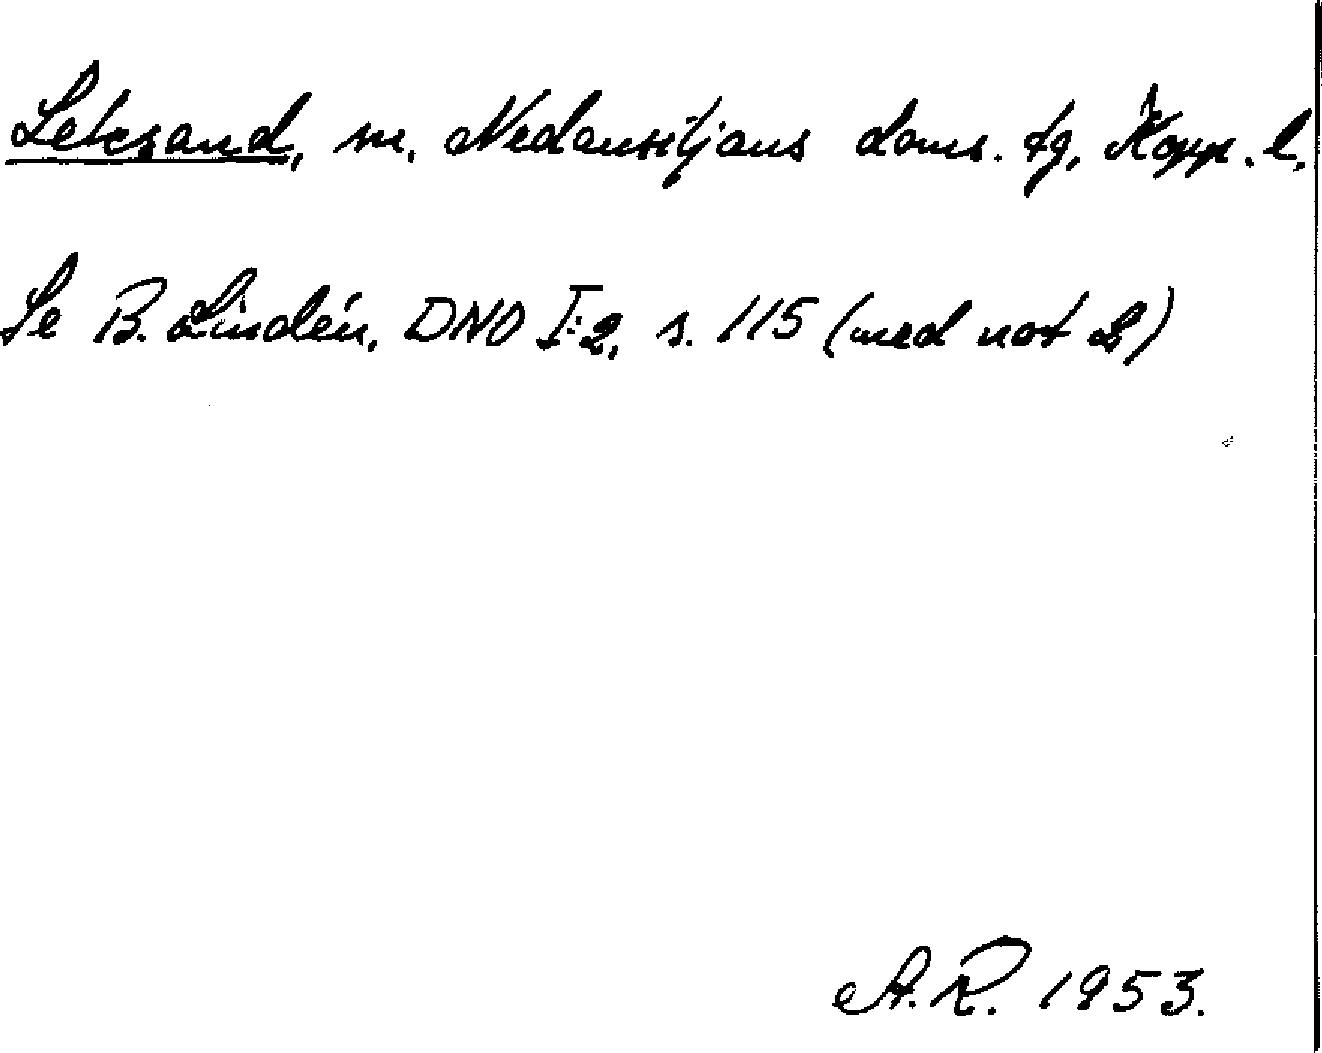 Leksand, sn, Nedansiljans doms. tg, Kopp. l.
Se B. Lindén, DNO I:2, s. 115 (med not 2)
A.R. 1953.